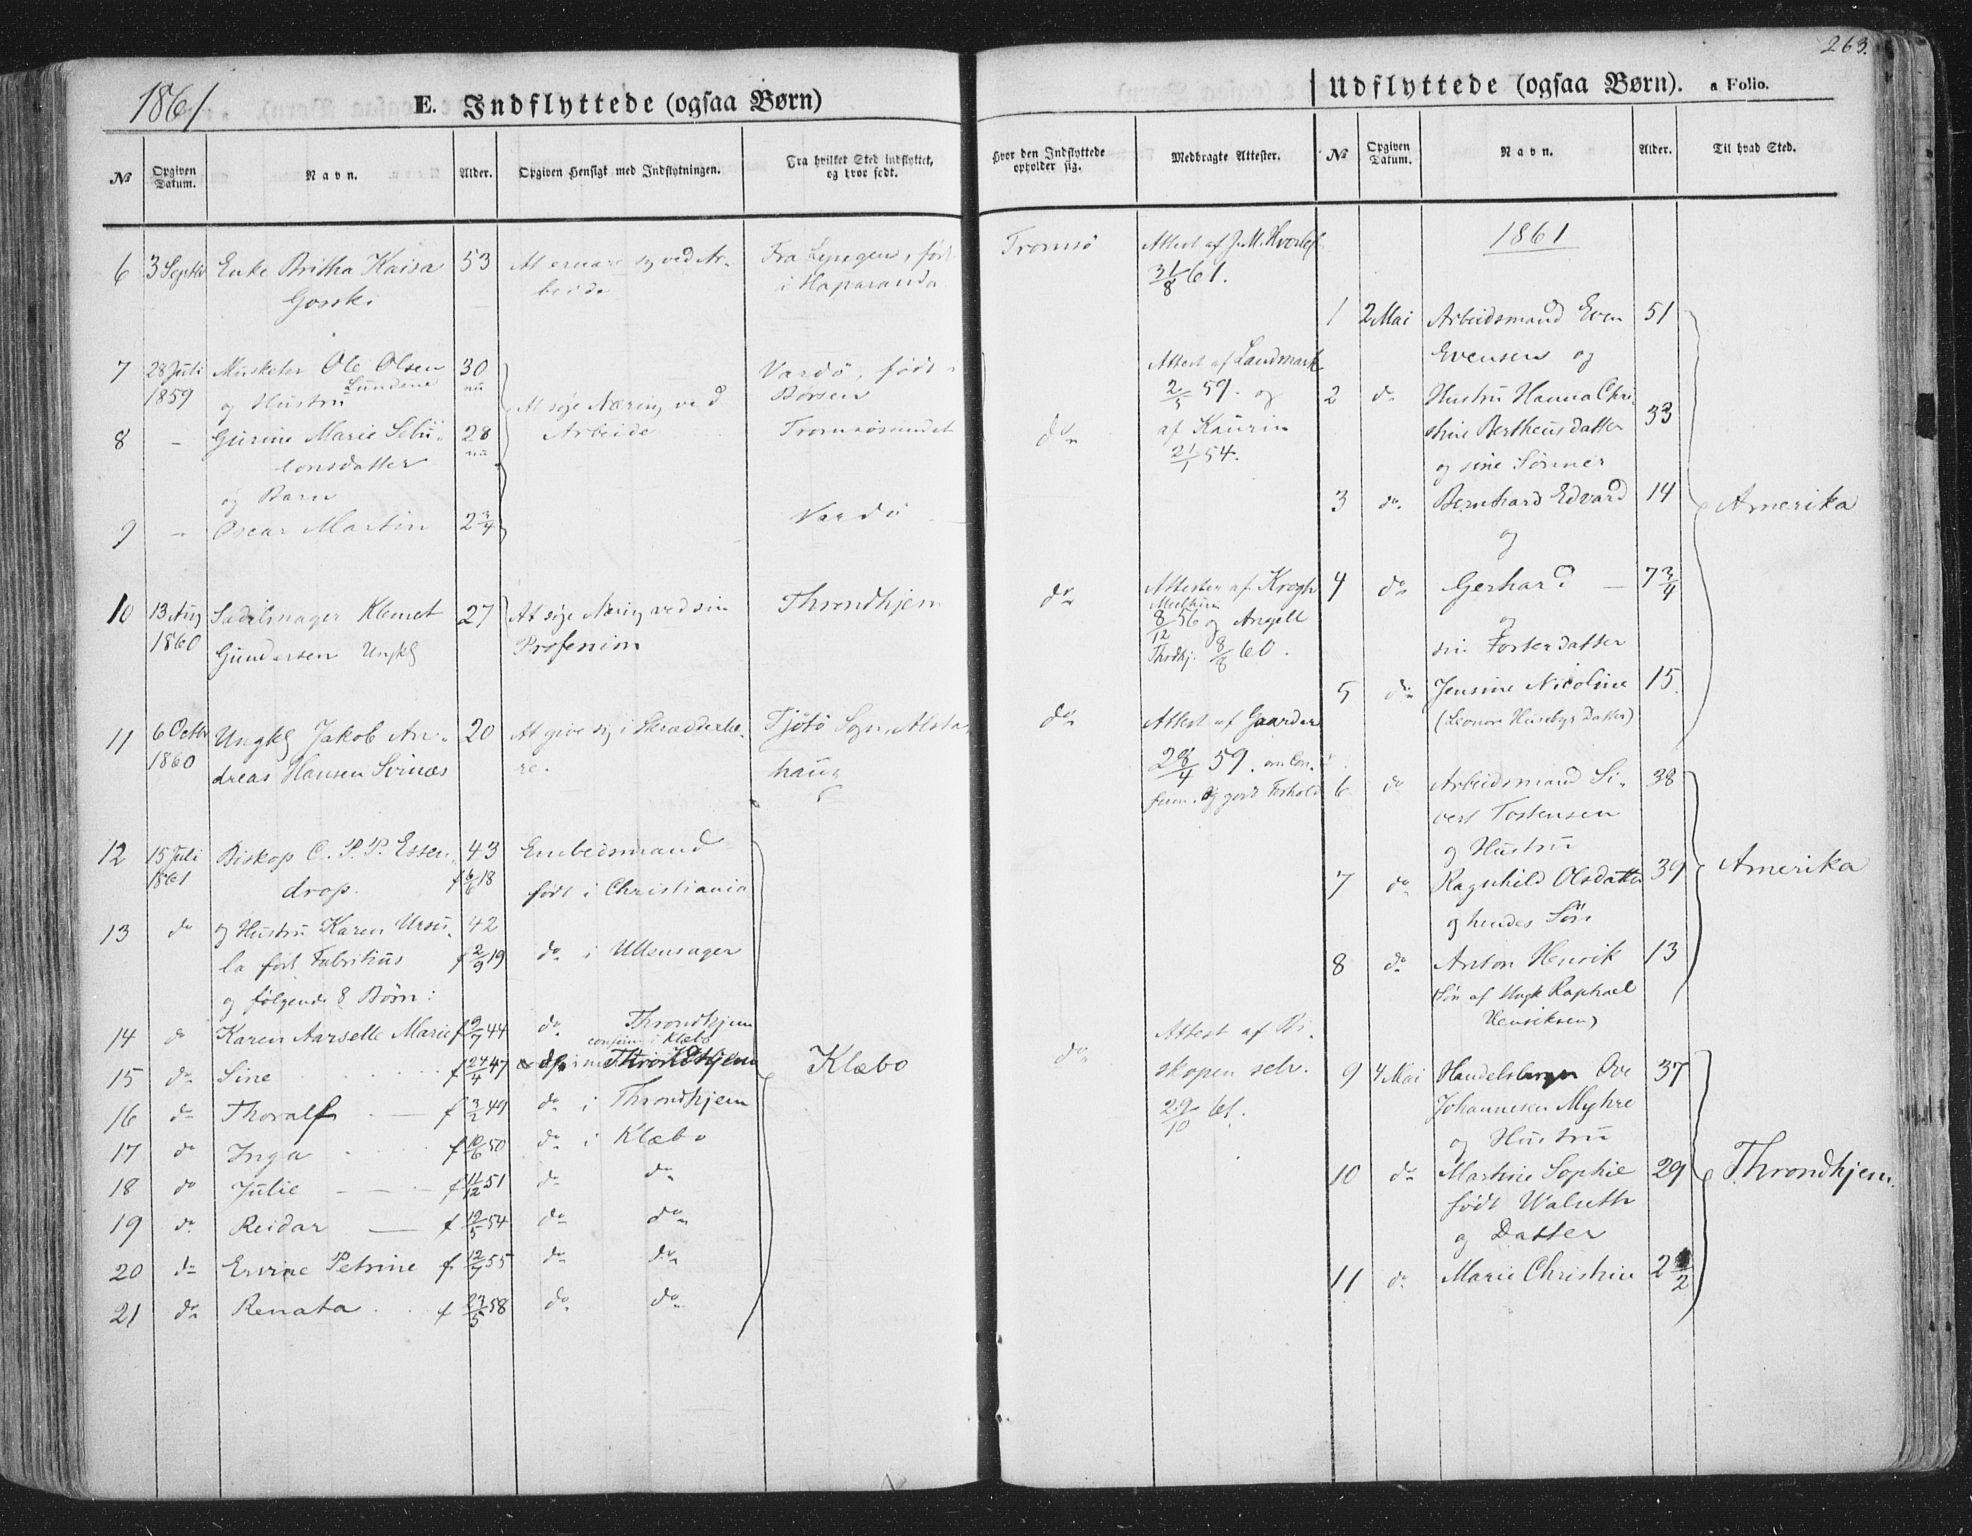 1861
E. Indflyttede (ogsaa Børn)
№
Opgiven Datum.
Navn.
Alder.
Opgiven Hensigt med Indflytningen.
Fra hvilket Sted indflyttet, og hvor født.
Hvor den Indflyttede opholder sig.
Medbragte Attester.
6 3 Septbr Enke Britha Kaisa 53 At ernære sig ved Ar- Fra Lyngen, født Tromsö Attest af J. M.
beide i Haparanda 31/8 61.
7 28 Juli Musketer Ole Olsen 30 Vardö, födt i Attest af Landmark
1859 Lundene nu Börsen 2/5 59. og
og Hustru At söge Næring ved
8 - Gurine Marie 28 Arbeide Tromsösundet do af Kaurin
onsdatter nu 21/1 54.
og Barn
9 - Oscar Martin 2 3/4 Vardö
10 13 Aug Sadelmager Klemet 27 At söge Næring ved sin Throndhjem do Attester af Krogh
1860 Gundersen Ungk Profession 8/12 56 og Angell
Throdhj. 8/8 60.
11 6 Octbr Ungk Jakob An- 20 At give sig i Skrædderlæ- Tjötö Sogn Alsta- do Attest af Gaarder
1860 dreas Hansen re. haug 28/4 59. om Con-
firm. og godt Forhold
12 15 Juli Biskop C. P. P. Essen- 43 Embedsmand
1861 drop. f 6/6 18 födt i Christiania
13 do og Hustru Karen Ursu- 42
la född Fabritius f 2/9 19 do i Ullensager
og følgende 8 Börn:
14 do Karen Aarselle Marie f 9/7 44 do Throndhjem Attest af Bi-
confirm. i Klæbo
15 do Sine f 24/4 47 Throndhjem Klæbo do skopen selv.
16 do Thoralf f 3/2 49 do i Throndhjem 29/10 61.
17 do Inga f 10/6 50 do i Klæbo
18 do Julie f 11/12 51 do do
19 do Reidar f 12/5 54 do do
20 do Ervine Petrine f 12/7 55 do do
21 do Renata f 23/5 58 do do
263.
Udflyttede (ogsaa Børn). a Folio.
№
Opgiven Datum.
Navn.
Alder.
Til hvad Sted.
1861
1 2 Mai Arbeidsmand Even 51
Evensen og
2 do Hustru Hanna Chri-
stine Bertheusdatter 33
og sine Sönner
3 do Bernhard Edvard 14 Amerika
og
4 do Gerhard 7 3/4
og
sin Fosterdatter
5 do Jensine Nicoline 15.
(Leonore Husebys Datter)
6 do Arbeidsmand Si- 38
vert Tostensen
og Hustru
7 do Ragnhild Olsdatter 39 Amerika
og hendes Sön
8 do Anton Henrik 13
(Sön af Ungk Raphael
Henriksen)
9 4 Mai Handelsborger Ove 37
Johannesen Myhre
og Hustru
10 do Martine Sophie 29 Throndhjem.
född Walseth
og Datter
11 do Marie Christine 2 1/2